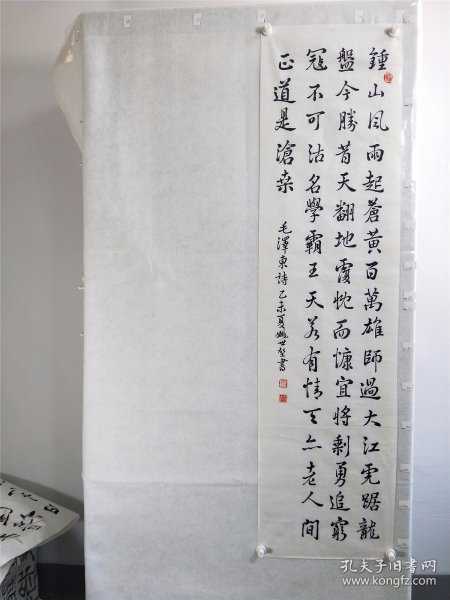 鍾山風雨起蒼黃百萬雄師過大江虎踞龍
盤今勝昔天翻地覆慨而慷宜將剩勇追窮
冦不可沽名學霸王天若有情天亦老人間
正道是滄桑
毛澤東詩乙未夏姚世書
孔夫子旧书网
www.kongfz.com